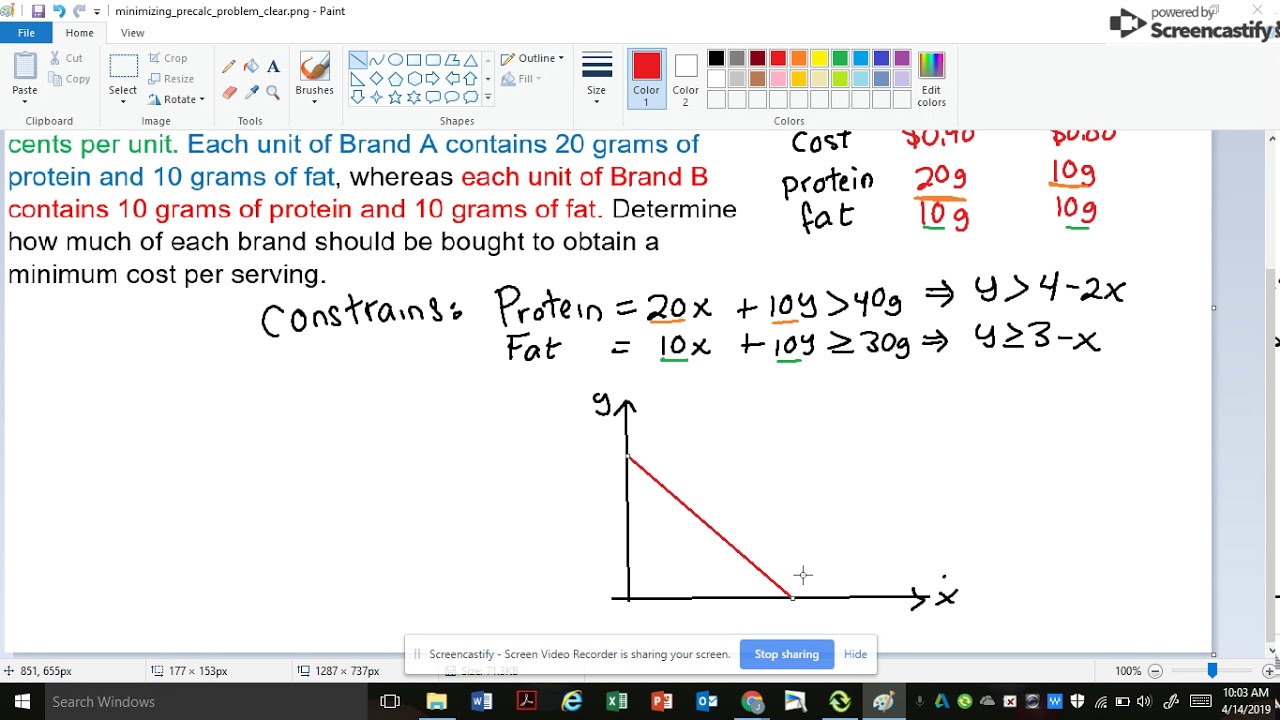 minimizing_precalc_problem_clear.png - Paint
powered by
Screencastify
File Home View
Cut
Copy
Paste
Clipboard
Select
Crop
Resize
Rotate
Image
Tools
Brushes
Outline
Fill
Shapes
Size
Color 1
Color 2
Edit colors
Colors
cents per unit. Each unit of Brand A contains 20 grams of
protein and 10 grams of fat, whereas each unit of Brand B
contains 10 grams of protein and 10 grams of fat. Determine
how much of each brand should be bought to obtain a
minimum cost per serving.
Cost
protein 20g 10g
fat 10g 10g
Constrains: Protein = 20x + 10y > 40g ⇒ y > 4-2x
Fat = 10x + 10y ≥ 30g ⇒ y ≥ 3-x
y
x
Screencastify - Screen Video Recorder is sharing your screen. Stop sharing Hide
851, 655px 177 × 153px 1287 × 737px Size: 71.3KB 100%
Search Windows
10:03 AM
4/14/2019